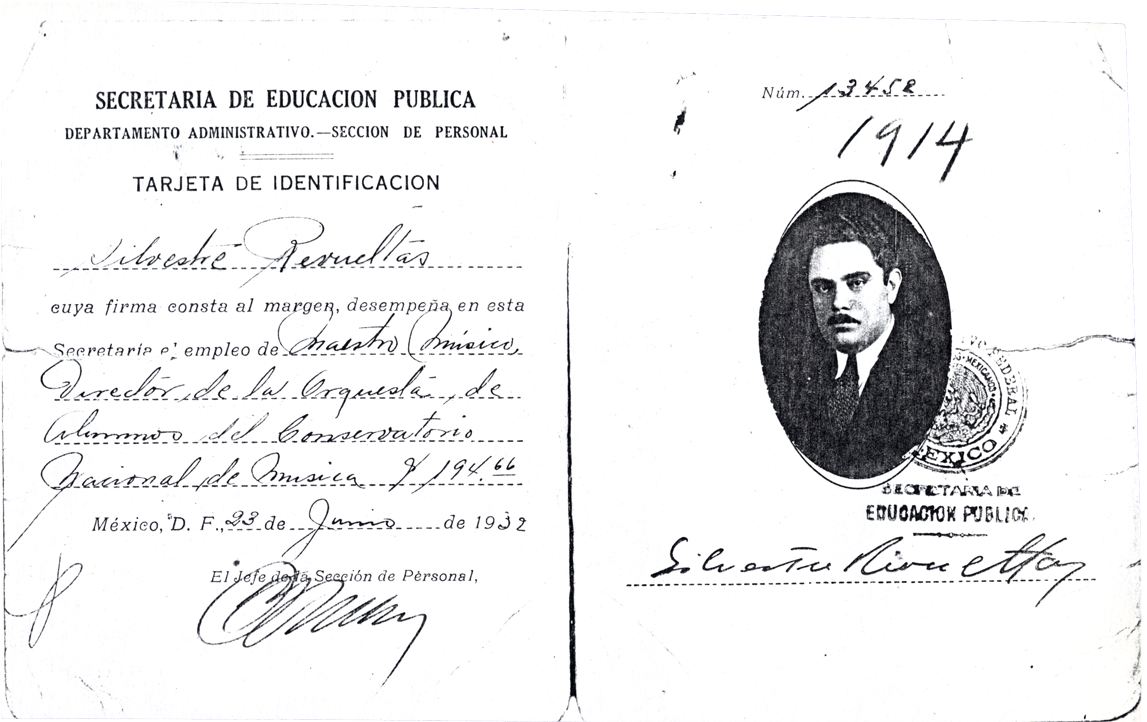 SECRETARIA DE EDUCACION PUBLICA
DEPARTAMENTO ADMINISTRATIVO.—SECCION DE PERSONAL
TARJETA DE IDENTIFICACION
Silvestre Revueltas
cuya firma consta al margen, desempeña en esta
Secretaría el empleo de Maestro Músico,
Director de la Orquesta de
Alumnos del Conservatorio
Nacional de Musica $194.66
México, D. F., 23 de Junio de 1932
El Jefe de la Sección de Personal,
Núm. 13452
1914
FEDERAL
MEXICANOS
MEXICO
SECRETARIA DE
EDUCACION PUBLICA.
Silvestre Revueltas